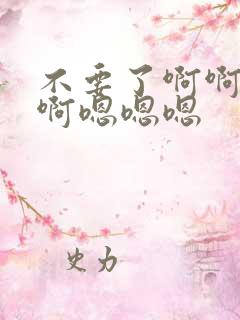 不要了啊啊
啊嗯嗯嗯
史力